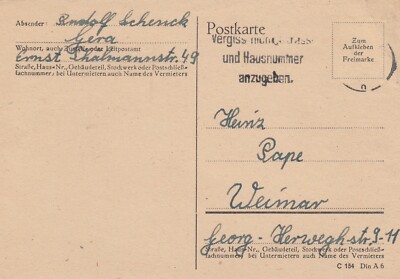 Absender: Rudolf Schenck
Gera
Wohnort, auch Zustell- oder Leitpostamt
Ernst Thälmannstr. 49
Straße, Haus-Nr., Gebäudeteil, Stockwerk oder Postschließ-
fachnummer; bei Untermietern auch Name des Vermieters
Postkarte
Vergiss nicht Strass-
und Hausnummer
anzugeben.
Zum
Aufkleben
der
Freimarke
Heinz
Pape
Weimar
Georg-Herweghstr. 9-11
Straße, Haus-Nr., Gebäudeteil, Stockwerk oder Postschließfachnummer;
bei Untermietern auch Name des Vermieters
C 154 Din A 6